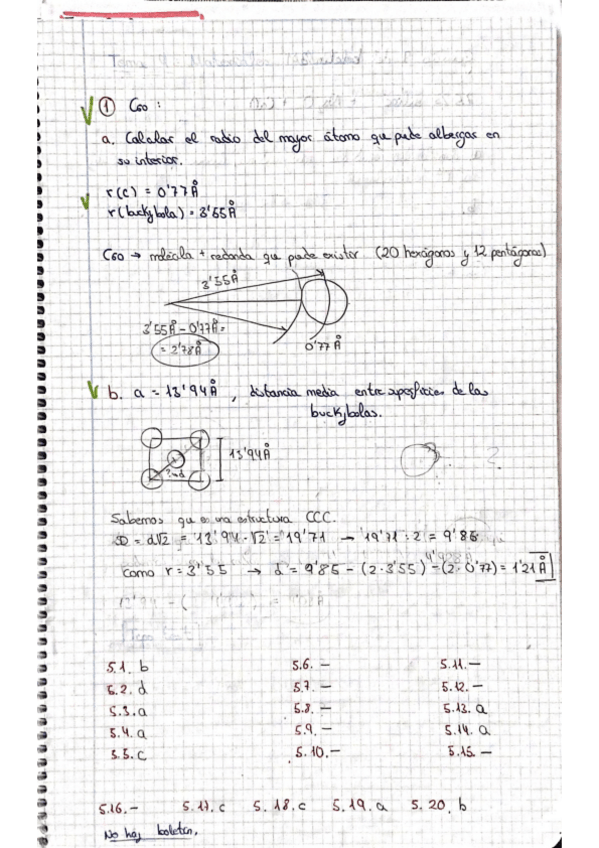 ① C60 :
a. Calcular el radio del mayor átomo que puede albergar en
su interior.
r(C) = 0'77Å
r(buckybola) = 3'55Å
C60 → molécula + redonda que puede existir (20 hexágonos y 12 pentágonos)
3'55Å
3'55Å - 0'77Å =
= 2'78Å
0'77Å
b. a = 13'94Å, distancia media entre superficies de las
buckybolas.
13'94Å
?
Sabemos que es una estructura CCC.
D = d√2 = 13'94·√2 = 19'71 → 19'71 : 2 = 9'86
como r = 3'55 → d = 9'85 - (2·3'55) - (2·0'77) = 1'21Å
5.1. b 5.6. — 5.11. —
5.2. d 5.7. — 5.12. —
5.3. a 5.8. — 5.13. a
5.4. a 5.9. — 5.14. a
5.5. c 5.10. — 5.15. —
5.16. — 5.17. c 5.18. c 5.19. a 5.20. b
No hay boletín.